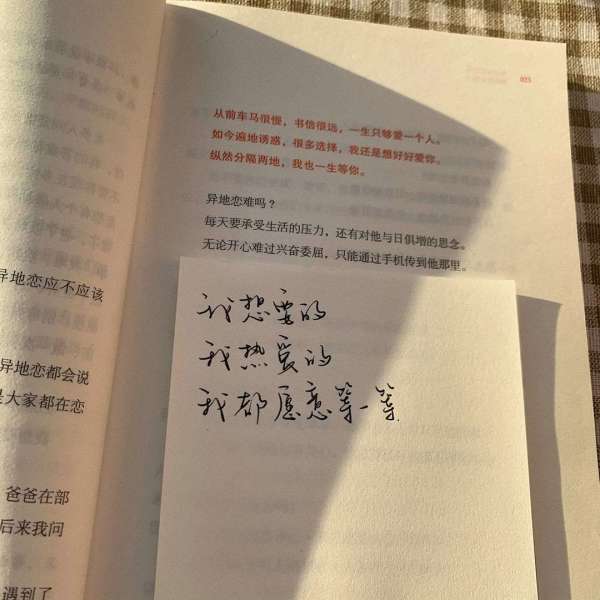 异地恋应不应该
异地恋都会说
是大家都在恋
爸爸在部
后来我问
遇到了
023
从前车马很慢，书信很远，一生只够爱一个人。
如今遍地诱惑，很多选择，我还是想好好爱你。
纵然分隔两地，我也一生等你。
异地恋难吗？
每天要承受生活的压力，还有对他与日俱增的思念。
无论开心难过兴奋委屈，只能通过手机传到他那里。
我想要的
我热爱的
我都愿意等一等